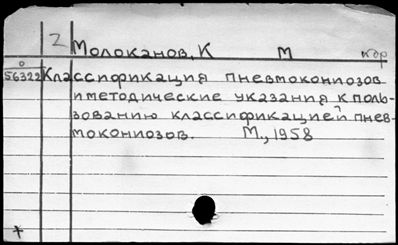 2 Молоканов, К М кор
56322 Классификация пневмокониозов
и методические указания к поль-
зованию классификацией пнев-
мокониозов. М., 1958